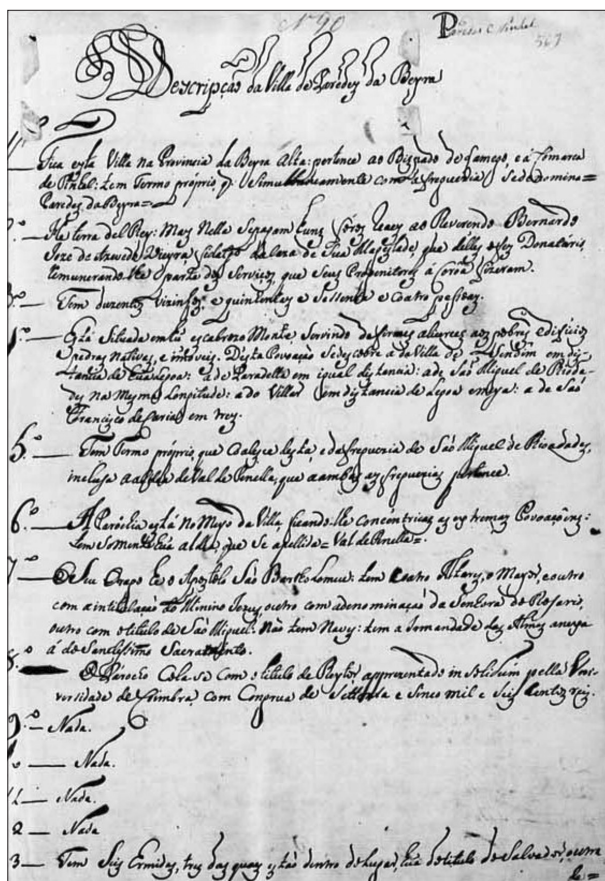 Nº 90
Paredes C. Pinhel
567
Descripçaõ da Villa de Paredes da Beyra
Fica esta Villa na Provincia da Beyra Alta: pertence ao Bispado de Lamego, e á Comarca
de Pinhel: tem Termo próprio, simultaneamente com a freguezia Sedenomina=
Paredes da Beyra=
2.º He terra del Rey: Mas Nella Sepagam huns fóros ao Reverendo Bernardo
Joze de Azevedo Vieyra fidalgo da Caza de Sua Magestade, que delles hé Donatário,
remunerando-lhe parte dos Serviços, que Seus Progenitores á Corôa fizeram.
3.º Tem duzentos vizinhos, e quinhentas e Sessenta e coatro pessoas.
4.º Está Situada em hũ escabrozo Monte Servindo de firmes alicerces aos pobres edificios
pedras nativas, e immóveis. Desta Povoaçaõ Sedescobre a da Villa de Sendim em dis-
tancia de huã legoa: a de Paradella em igual distancia: a de Saõ Miguel de Rioda-
des na Mesma Longitude: a do Villar em distancia de Legoa e meya: a de Saõ
Francisco de Carias em tres.
5.º Tem Termo próprio, que desta, e da freguezia de Saõ Miguel de Rioadades,
incluza a aldea de Val de Penella, que a ambas as freguezias pertence.
6.º A Paróchia está no Meyo da Villa, ficando-lhe concéntricas as extremas Povoaçoens:
tem Somente huã aldea, que Se apellida= Val de Penella=.
7.º O Seu Orago he o Apostolo Saõ Bartholomeu: tem coatro Altares, o Mayor, e outro
com a intitulaçaõ do Minino Jezus, outro com adenominaçaõ da Senhora do Rozario,
outro com o titulo de Saõ Miguel: Naõ tem Naves: tem a Irmandade das Almas anexa
á do Santissimo Sacramento.
8.º O Párocho Cola-se com o titulo de Reytor, appresentado in solidum pella Uni-
versidade de Coimbra, com Congrua de Settenta e Sinco mil e Seis Centos reis.
9.º Nada.
Nada.
11 Nada.
2 Nada
3 Tem Seis Ermidas, tres das quaes estaõ dentro do lugar, huã do titulo do Salvador, outra
de=